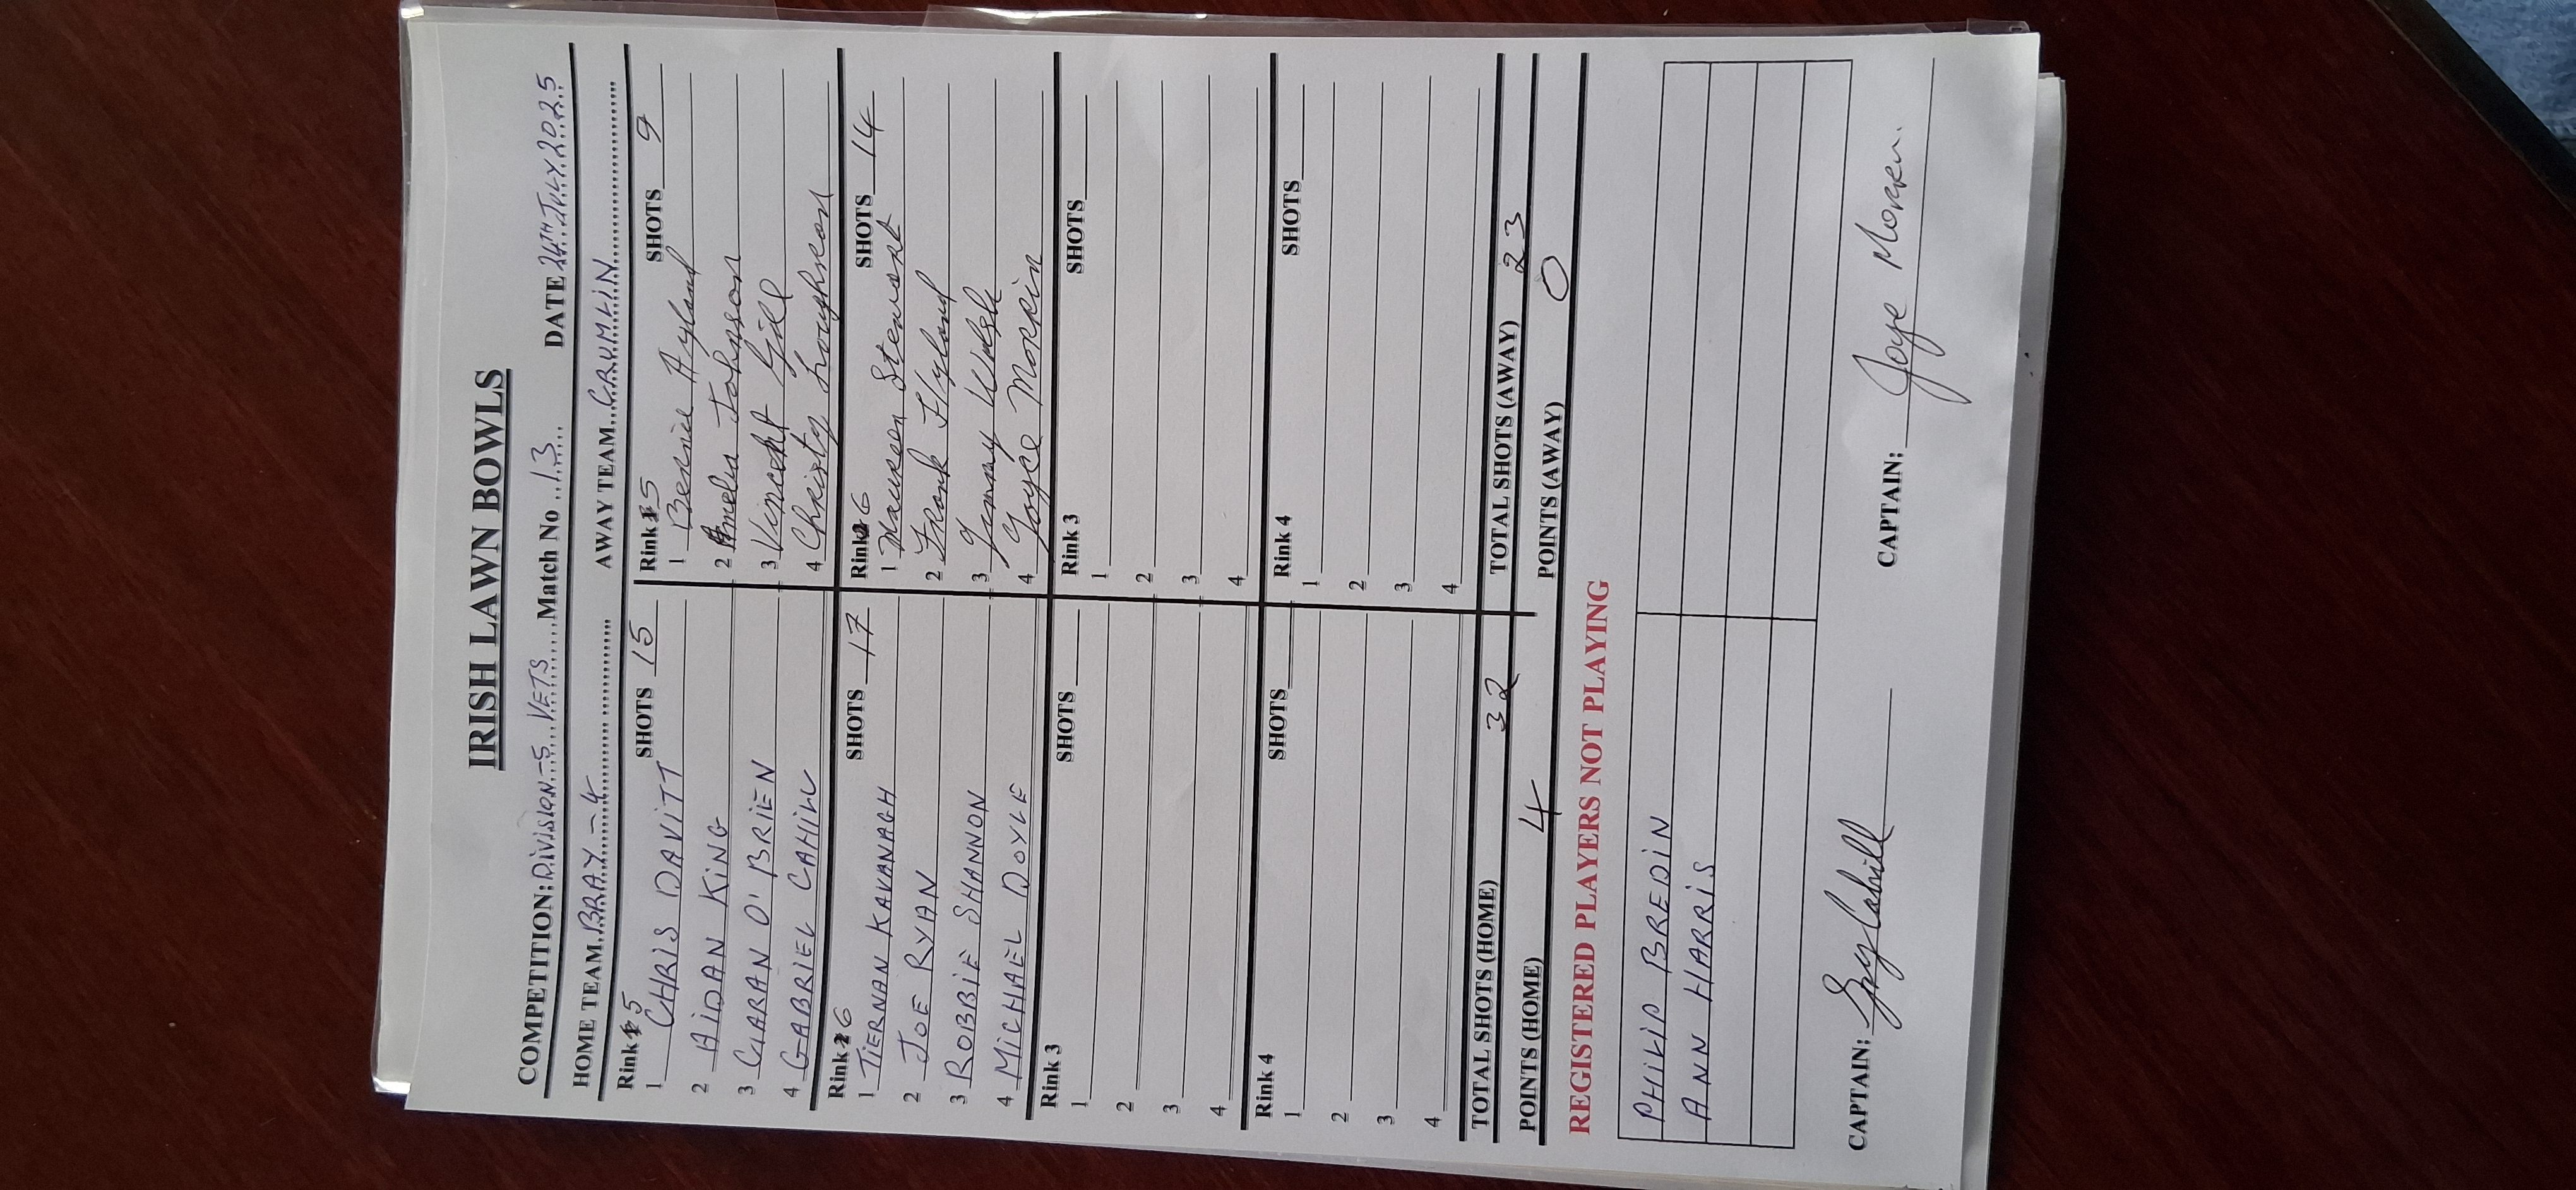 IRISH LAWN BOWLS
COMPETITION: DIVISION-5 VETS Match No 13 DATE 24TH JULY 2025
HOME TEAM BRAY - 4 AWAY TEAM CRUMLIN
Rink 5 SHOTS 15 Rink 5 SHOTS 9
1 CHRIS DAVITT 1 Bernie Hyland
2 AIDAN KING 2 Amelia Johnson
3 CIARAN O'BRIEN 3 Vincent Gill
4 GABRIEL CAHILL 4 Christy Loughreon
Rink 6 SHOTS 17 Rink 6 SHOTS 14
1 TIERNAN KAVANAGH 1 Maureen Stewart
2 JOE RYAN 2 Frank Hyland
3 ROBBIE SHANNON 3 Jimmy Walsh
4 MICHAEL DOYLE 4 Joyce Morrin
Rink 3 SHOTS Rink 3 SHOTS
1 1
2 2
3 3
4 4
Rink 4 SHOTS Rink 4 SHOTS
1 1
2 2
3 3
4 4
TOTAL SHOTS (HOME) 32 TOTAL SHOTS (AWAY) 23
POINTS (HOME) 4 POINTS (AWAY) 0
REGISTERED PLAYERS NOT PLAYING
PHILIP BREDIN
ANN HARRIS
CAPTAIN: Cahill CAPTAIN: Joyce Morrin